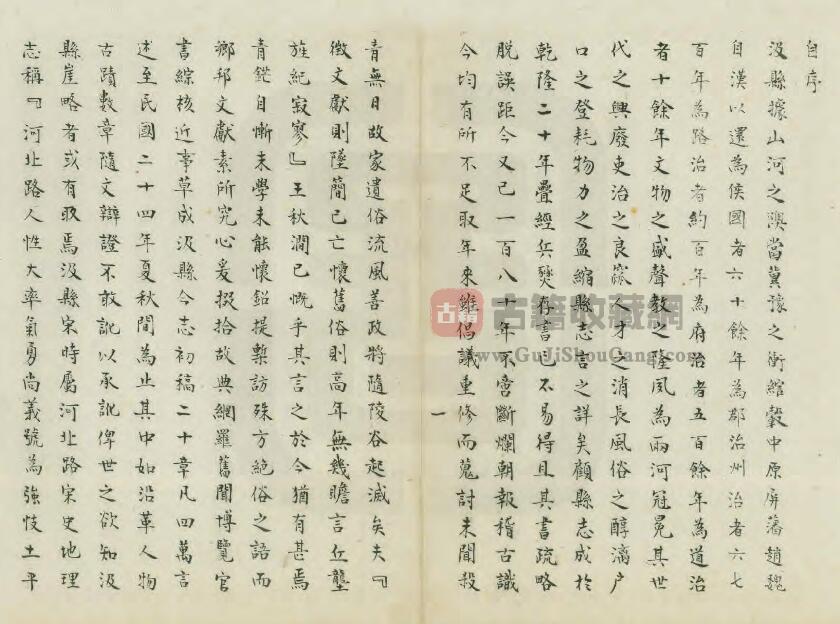 自序
汲縣據山河之隩當冀豫之衝綰轂中原屏藩趙魏
自漢以還為侯國者六十餘年為郡治州治者六七
百年為路治者約百年為府治者五百餘年為道治
者十餘年文物之盛聲教之隆夙為兩河冠冕其世
代之興廢吏治之良窳人才之消長風俗之醇漓戶
口之登耗物力之盈縮縣志言之詳矣顧縣志成於
乾隆二十年疊經兵燹存書已不易得且其書疏略
脫誤距今又已一百八十年不啻斷爛朝報稽古識
今均有所不足取年來雖倡議重修而蒐討未聞殺
一
青無日故家遺俗流風善政將隨陵谷起滅矣夫『
徵文獻則墜簡已亡懷舊俗則高年無幾瞻言丘壟
旌紀寂寥』王秋澗已慨乎其言之於今猶有甚焉
青鎧自慚末學未能懷鉛提槧訪殊方絕俗之語而
鄉邦文獻素所究心爰掇拾故典網羅舊聞博覽官
書綜核近事草成汲縣今志初稿二十章凡四萬言
述至民國二十四年夏秋間為止其中如沿革人物
古蹟數章隨文辯證不敢訛以承訛俾世之欲知汲
縣崖略者或有取焉汲縣宋時屬河北路宋史地理
志稱『河北路人性大率氣勇尚義號為強忮土平
古籍
古籍收藏網
www.GuJiShouCang.com